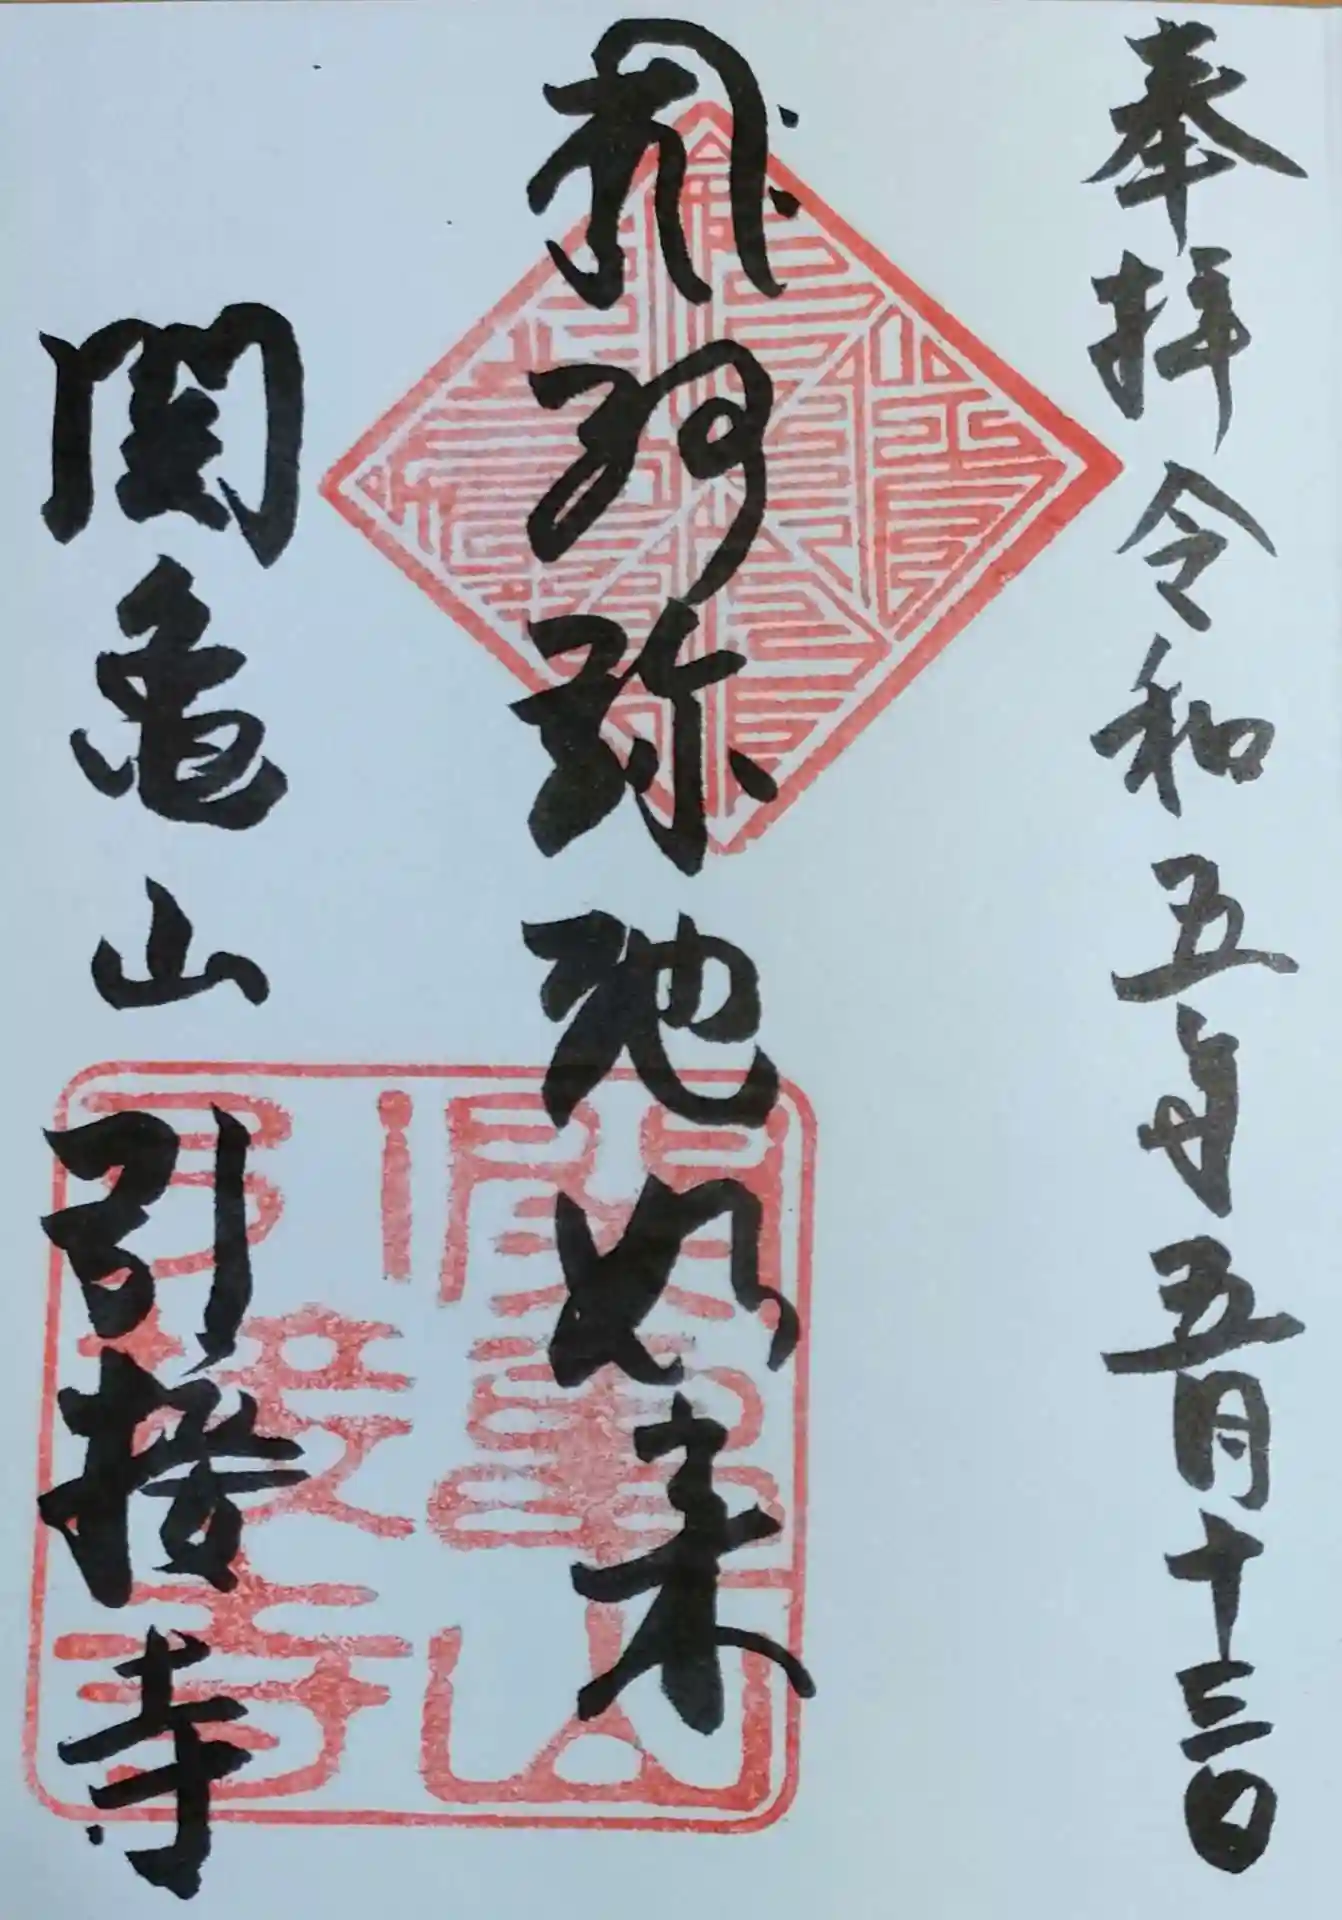 奉拝 令和五年五月十三日
阿弥陀如来
関亀山 引接寺
関亀山
引接寺